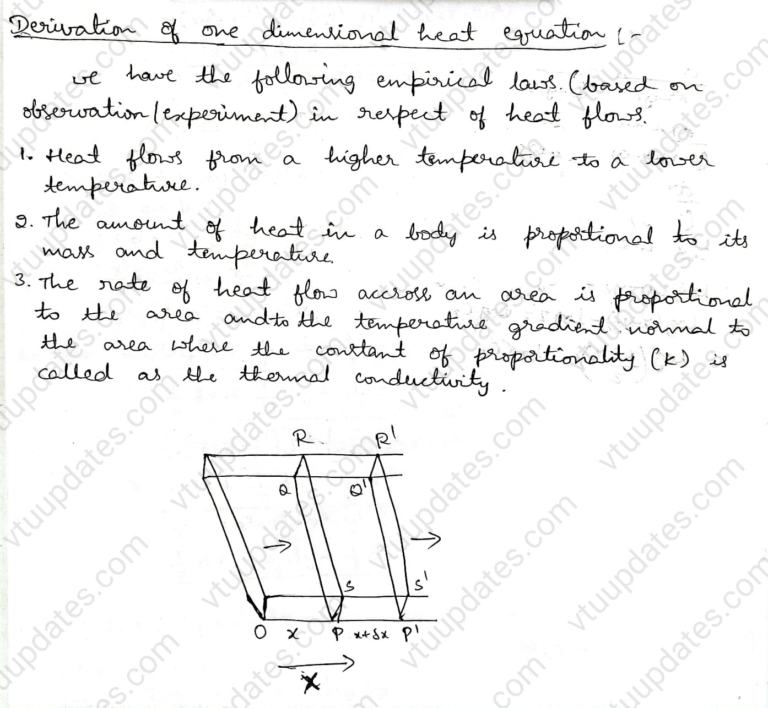 Derivation of one dimensional heat equation :-
we have the following empirical laws. (based on
observation/experiment) in respect of heat flows.
1. Heat flows from a higher temperature to a lower
temperature.
2. The amount of heat in a body is proportional to its
mass and temperature.
3. The rate of heat flow accross an area is proportional
to the area and to the temperature gradient normal to
the area where the constant of proportionality (k) is
called as the thermal conductivity.
R R'
Q Q'
S S'
O x P x+δx P'
X
vtuupdates.com